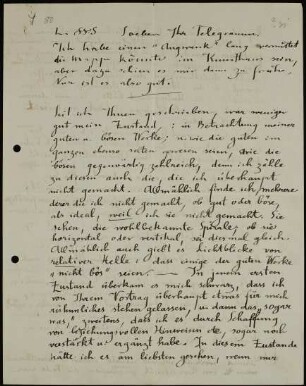 Soeben Ihr Telegramm.
Ich habe einen "Augenblick" lang vermutet
die Mappe könnte im Kunsthaus sein,
aber dazu schien es mir dann zu frühe.
Nun ist es also gut.
Seit ich Ihnen geschrieben, war weniger
gut mein Zustand, in Betrachtung meiner
guten u. bösen Werke; wie die guten im
ganzen etwas raten gewesen seien, wie die
bösen gegenwärtig zahlreich, denn ich zähle
zu diesen auch die, die ich überhaupt
nicht gemacht. Allmählich finde ich, mehrere
derer die ich nicht gemacht, ob gut oder böse,
als ideal, weil ich sie nicht gemacht. Sie
sehen, die wohlbekannte Spirale; ob sie
horizontal oder vertikal, sei diesmal gleich.
Allmählich auch gibt es Lichtblicke von
relativer Helle, dass einige der guten Werke
"nicht bös" seien. — In jenem ersten
Zustand überkam es mich schwarz, dass ich
von Ihrem Vortrag überhaupt etwas für mich
rühmliches stehen gelassen, ja dann das "sogar
was," zweitens, dass ich durch Schaffung
von beziehungsvollen Hinweisen etc, sogar noch
verstärkt u. ergänzt habe. In diesem Zustande
hätte ich es am liebsten gesehen, wenn mir